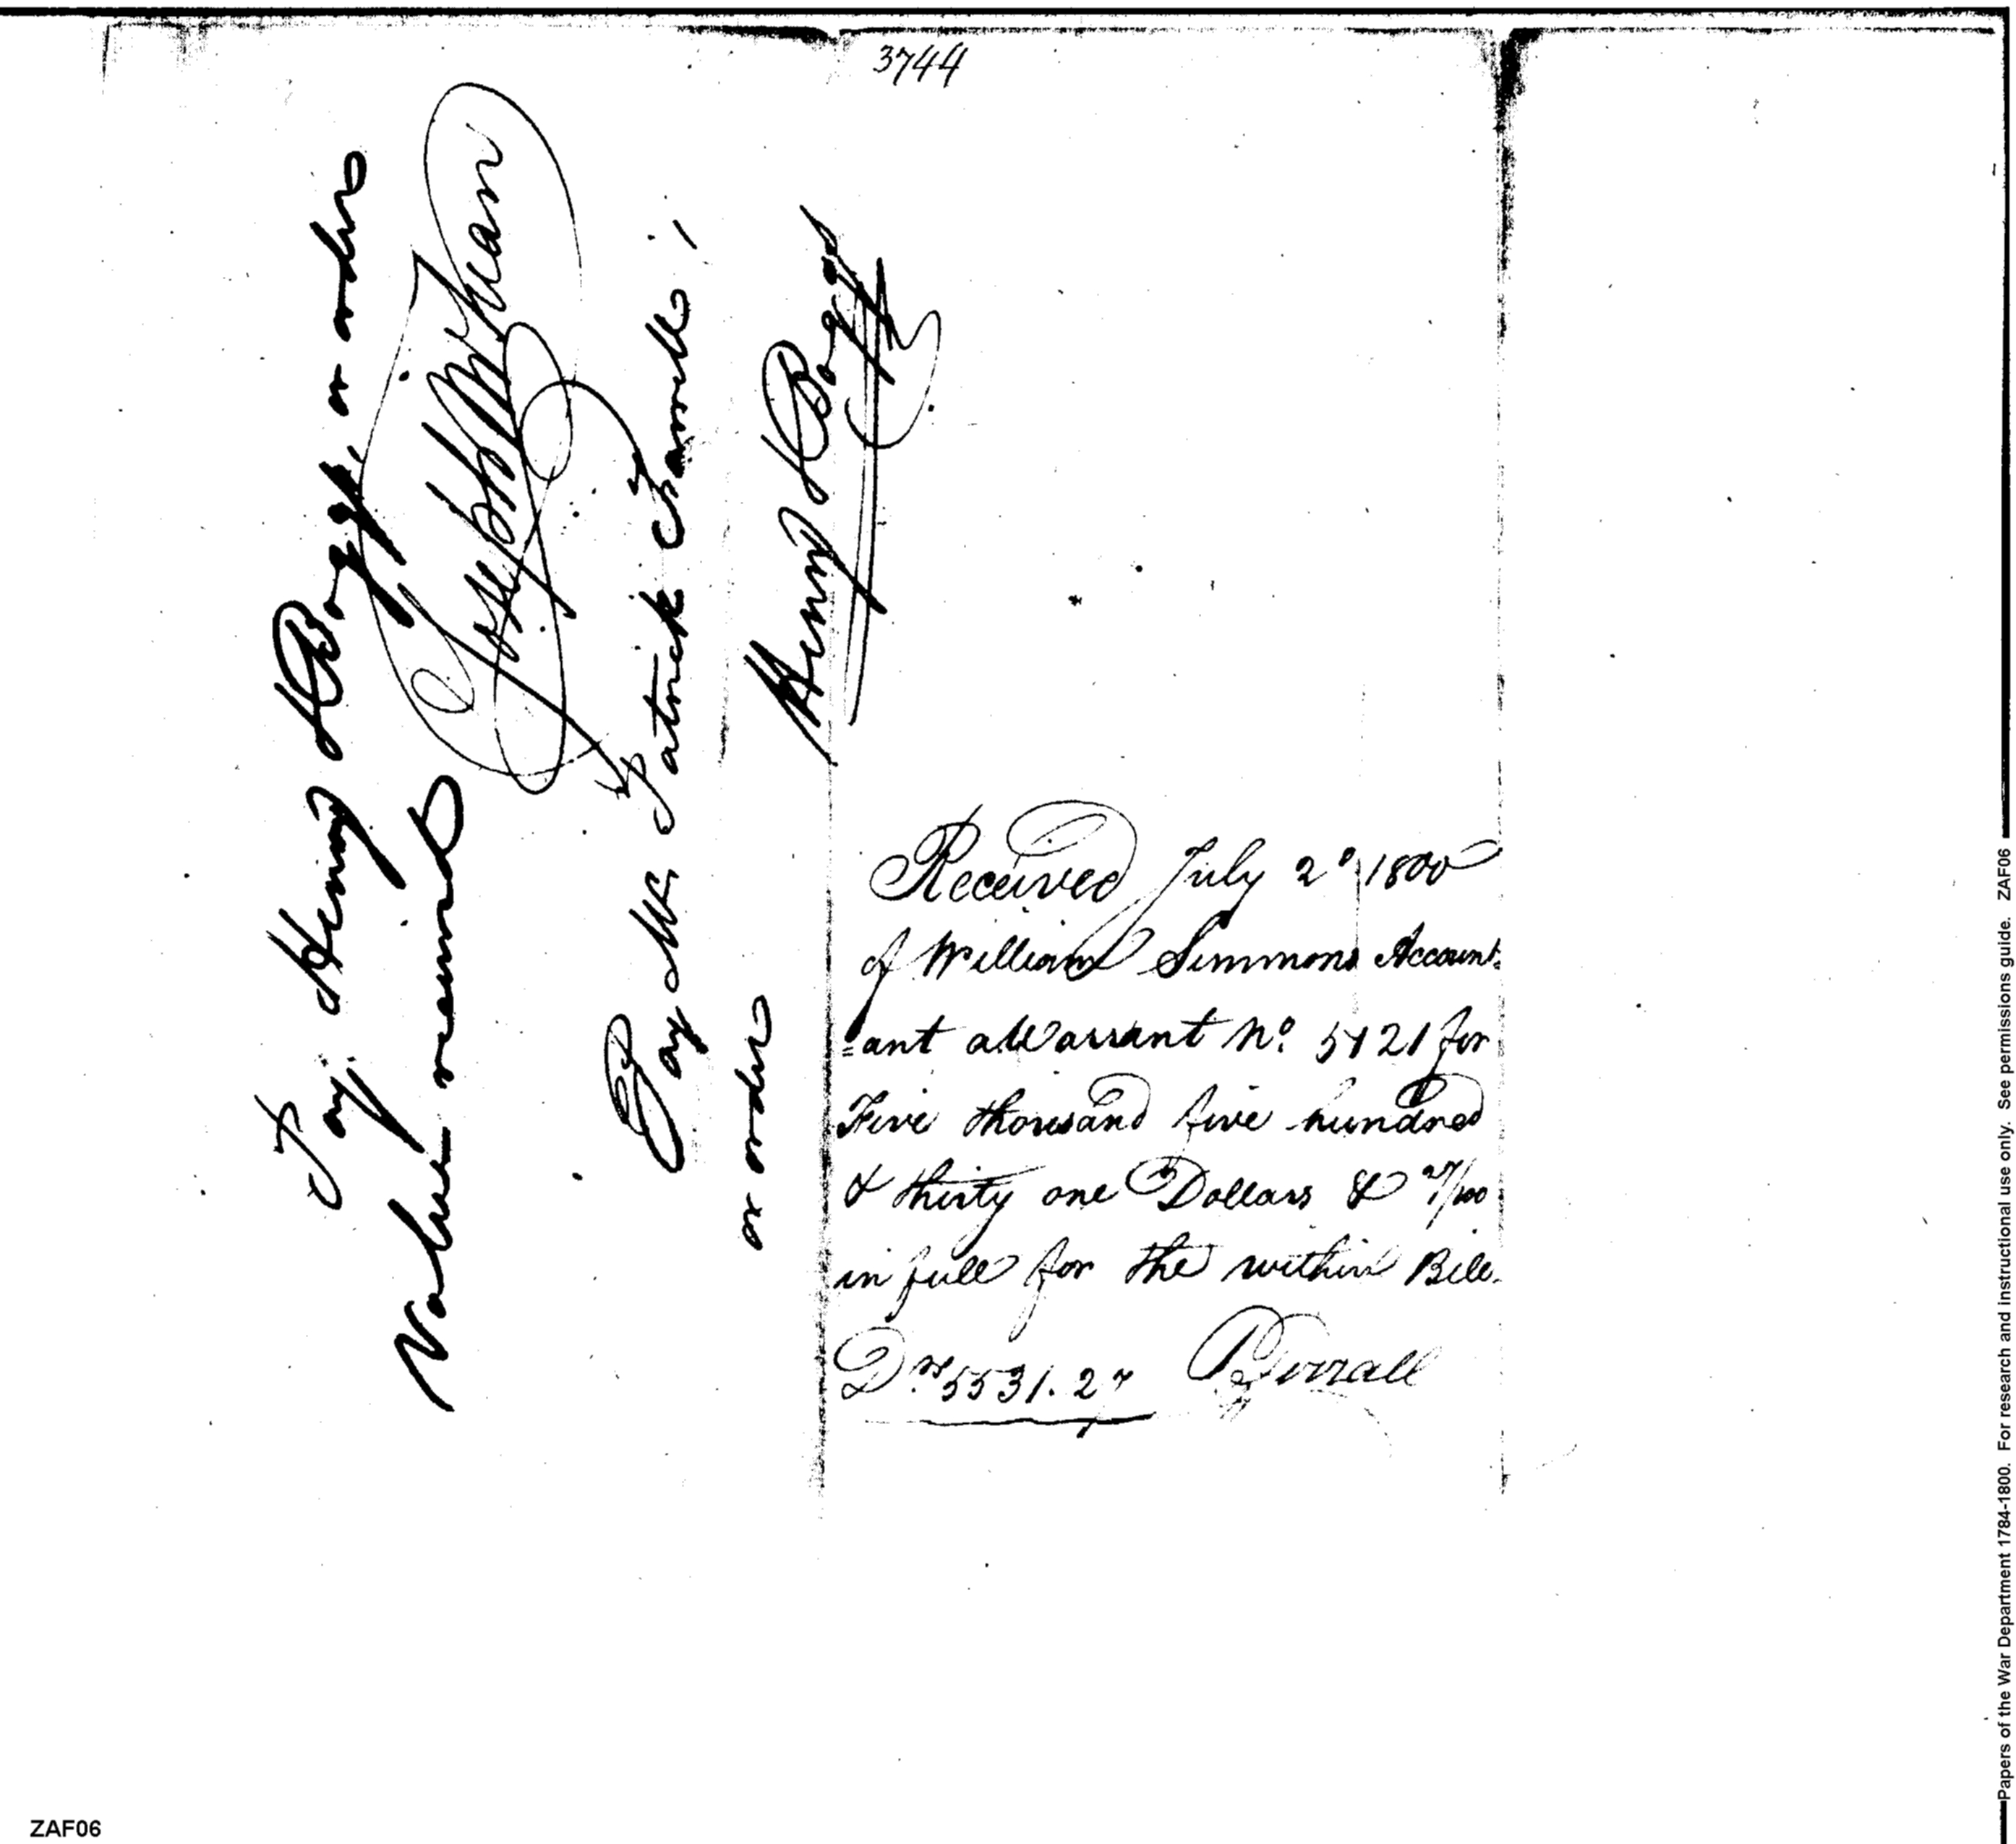 3744
Pay Henry Boggs, or order
Value received
Joseph McKean
Pay Mr. Patrick Farrell,
or order
Henry Boggs
Received July 2d 1800
of William Simmons Account.
=ant a Warrant No. 5421 for
Five thousand five hundred
& thirty one Dollars & 27/100
in full for the within Bill.
Drs 5531.27 PFerrall
Papers of the War Department 1784-1800. For research and instructional use only. See permissions guide. ZAF06
ZAF06